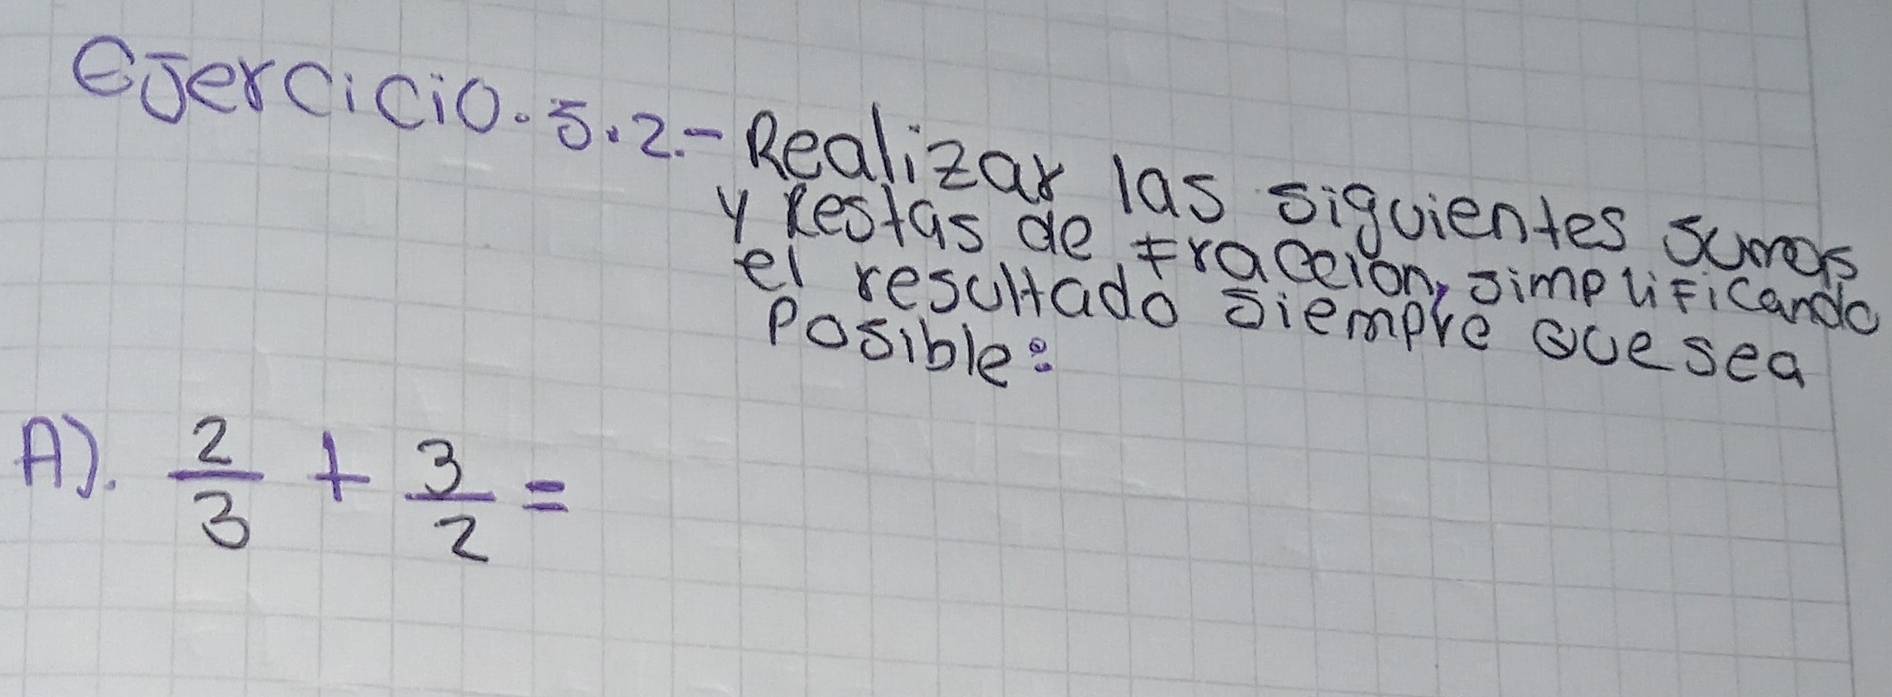 Ejercicio. 5.2.- Realizar las siguientes sumas
y Restas de fraccion, simplificando
el resultado siempre que sea
Posible:
A). 2/3 + 3/2 =